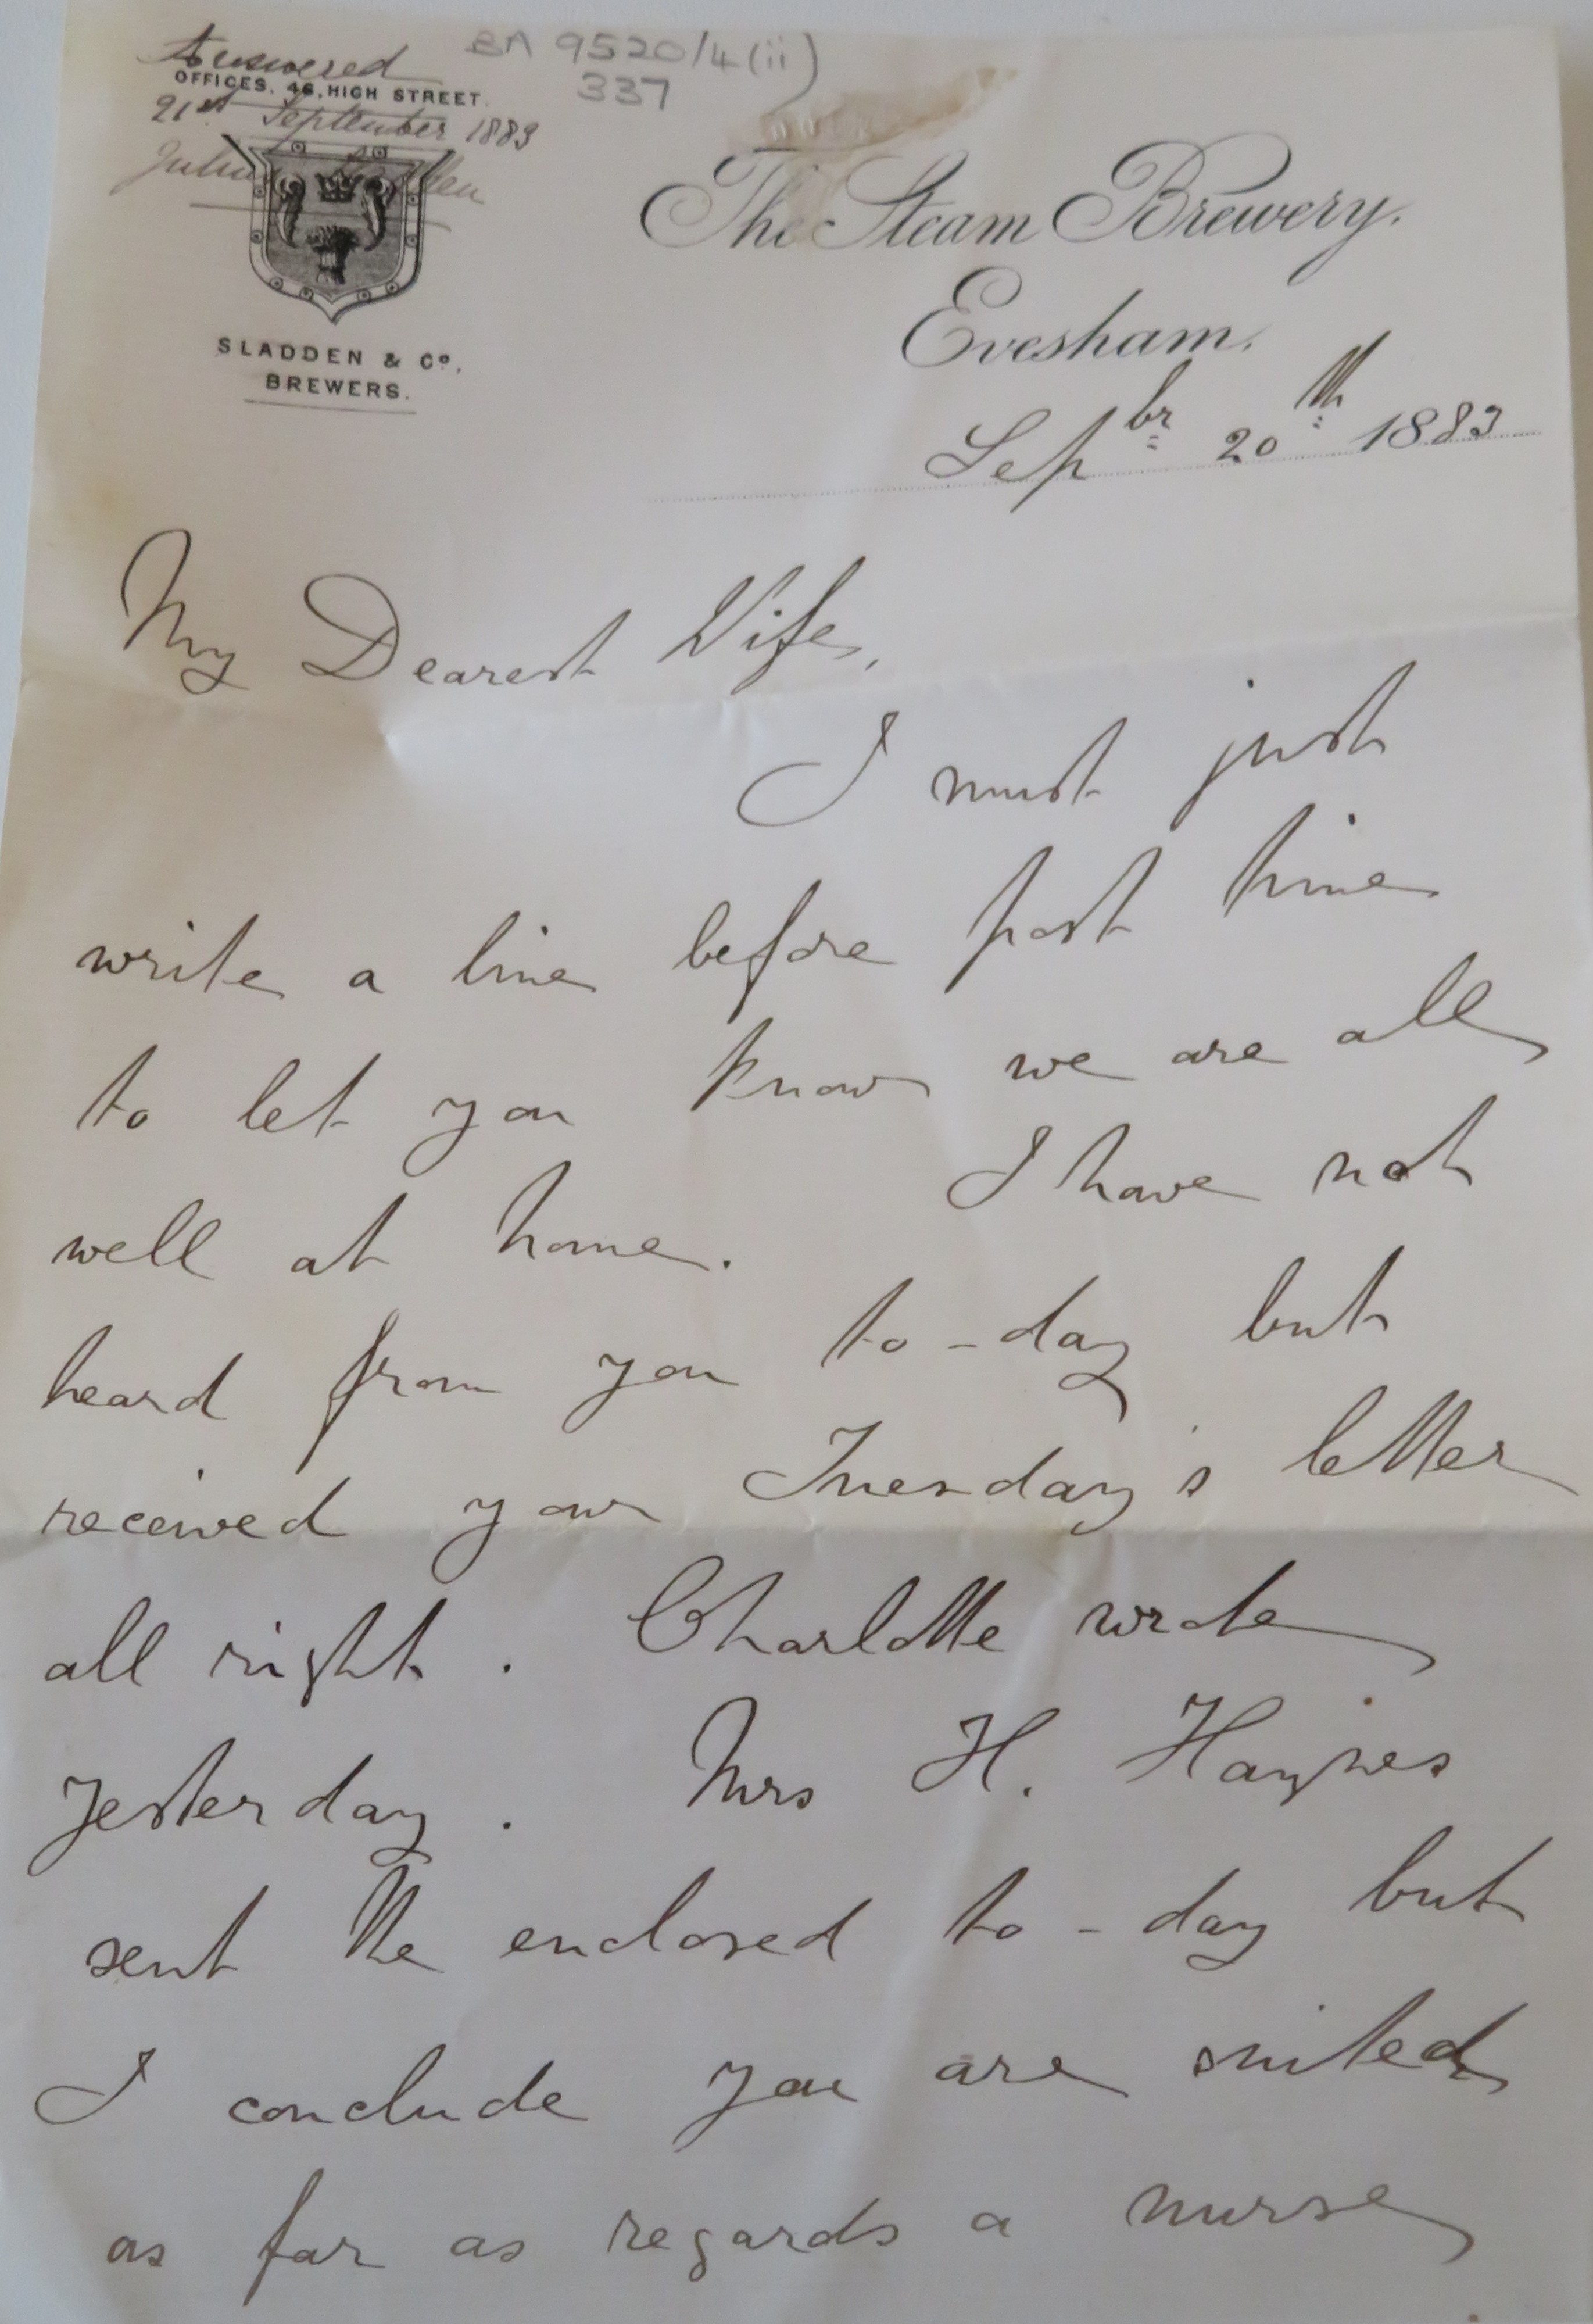 Answered
BA 9520/4(ii)
337
OFFICES, 46, HIGH STREET.
21st September 1883
Julius Sladden
The Steam Brewery.
Evesham.
SLADDEN & Co.
BREWERS.
Sepbr 20th 1883
My Dearest Wife,
I must just
write a line before post time
to let you know we are all
well at home. I have not
heard from you to-day but
received your Tuesday's letter
all right. Charlotte wrote
yesterday. Mrs H. Haynes
sent the enclosed to-day but
I conclude you are suited
as far as regards a nurse